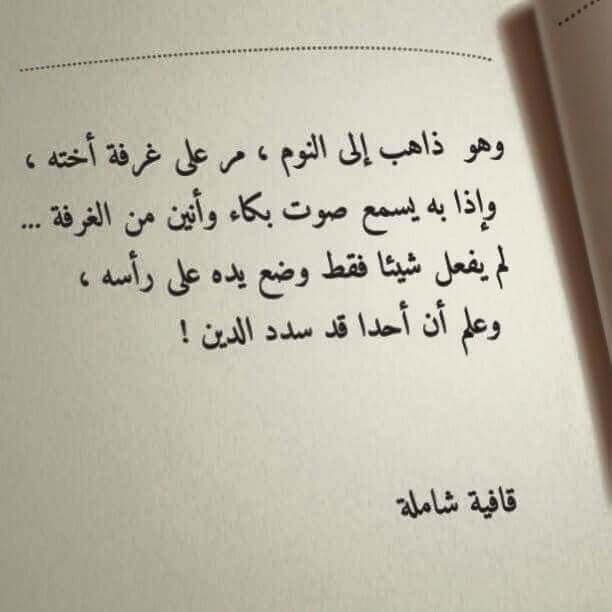 وهو ذاهب إلى النوم ، مر على غرفة أخته ،
وإذا به يسمع صوت بكاء وأنين من الغرفة ...
لم يفعل شيئا فقط وضع يده على رأسه ،
وعلم أن أحدا قد سدد الدين !
قافية شاملة